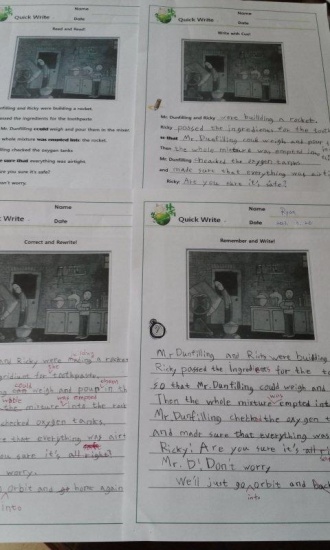 Name
Quick Write
Date
Read and Read!
Dunfilling and Ricky were building a rocket.
passed the ingredients for the toothpaste
Mr. Dunfilling could weigh and pour them in the mixer
whole mixture was emptied into the rocket
filling checked the oxygen tanks
sure that everything was airtight.
you sure it's safe?
Don't worry.
Name
Quick Write
Date
Write with Fun!
Mr. Dunfilling and Ricky were building a rocket.
Ricky passed the ingredients for the
so that Mr. Dunfilling could weigh and pour
Then the whole mixture was emptied
Mr. Dunfilling checked the oxygen tanks
and made sure that everything was
Ricky: Are you sure it's safe?
Name
Write
Date
Correct and Rewrite!
and Ricky were a rocket
for toothpaste
could
weigh and pour in th
whole was emptied
the mixture into the
checked oxygen tanks.
everything was
you sure it's all right?
worry.
go orbit and go home again
into
Name Ryan
Quick Write
Date
Remember and Write!
Mr Dunfilling and Ricky were building
Ricky passed the Ingredients for the
so that Mr. Dunfilling could weigh and
was
Then the whole mixture emptied into
Mr Dunfilling checked the oxygen
and made sure that everything was
Ricky: Are you sure it's
Mr. D! Don't worry
We'll just go orbit and back
into